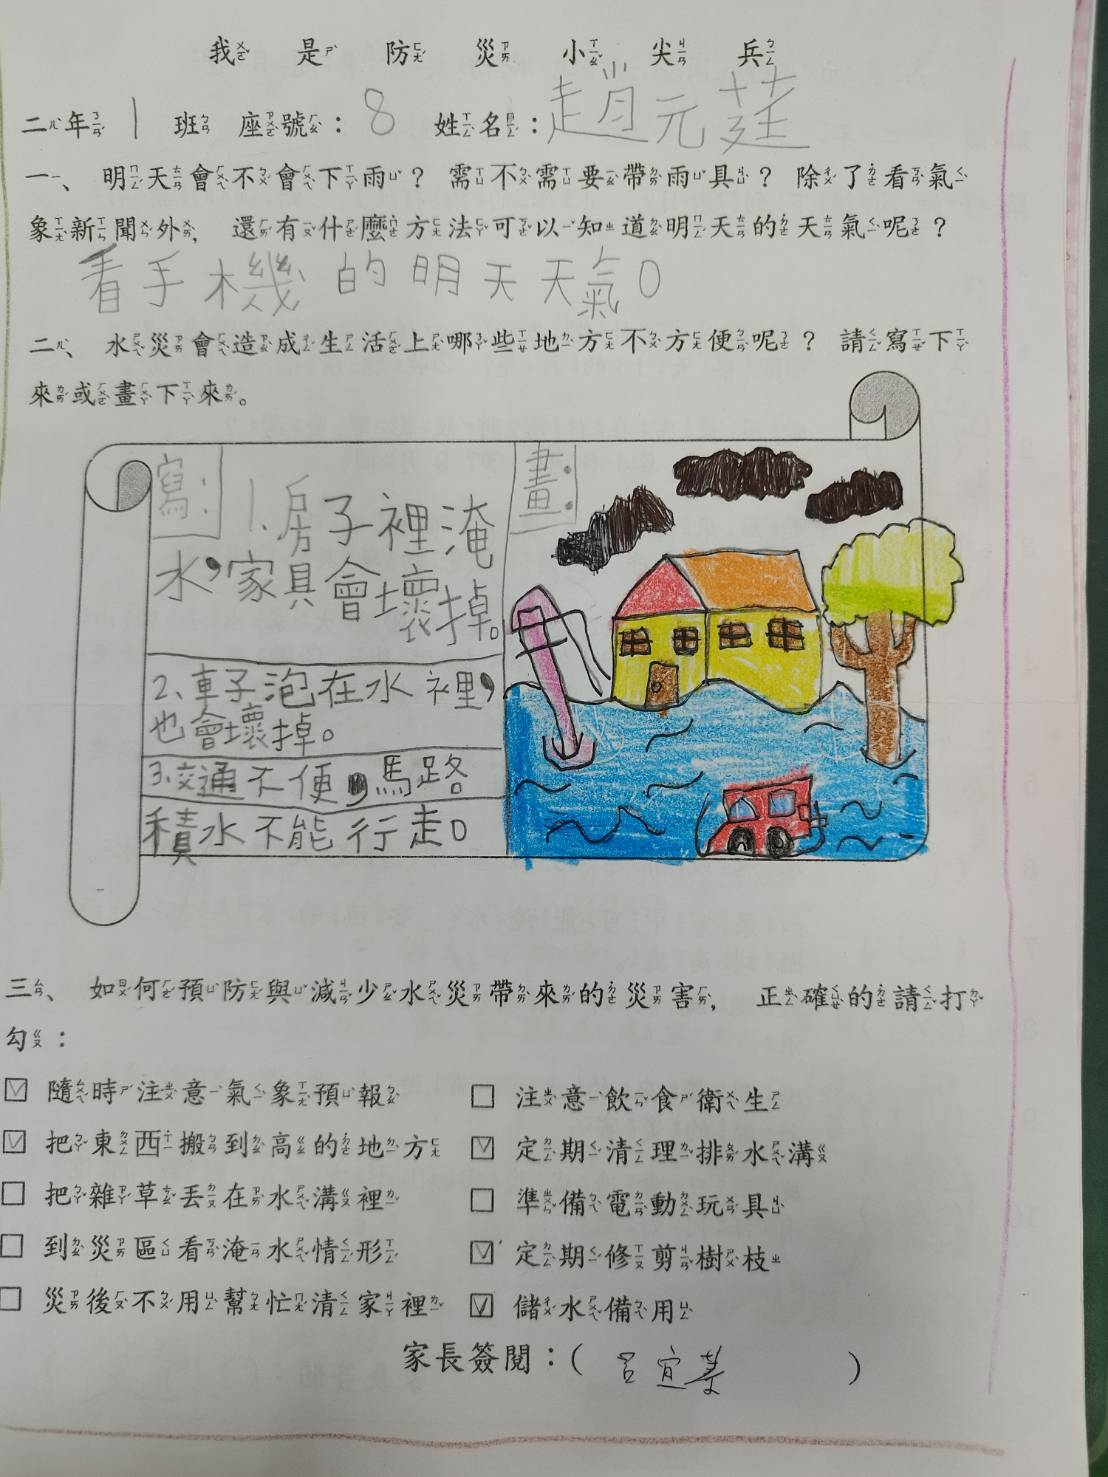 我是防災小尖兵
二年1班 座號：8 姓名：趙元莛
一、明天會不會下雨？需不需要帶雨具？除了看氣
象新聞外，還有什麼方法可以知道明天的天氣呢？
看手機的明天天氣。
二、水災會造成生活上哪些地方不方便呢？請寫下
來或畫下來。
寫：1.房子裡淹
水，家具會壞掉。
2、車子泡在水裡，
也會壞掉。
3.交通不便，馬路
積水不能行走。
畫：
三、如何預防與減少水災帶來的災害，正確的請打
勾：
☑ 隨時注意氣象預報 □ 注意飲食衛生
☑ 把東西搬到高的地方 ☑ 定期清理排水溝
□ 把雜草丟在水溝裡 □ 準備電動玩具
□ 到災區看淹水情形 ☑ 定期修剪樹枝
□ 災後不用幫忙清家裡 ☑ 儲水備用
家長簽閱：(呂宜蓁)